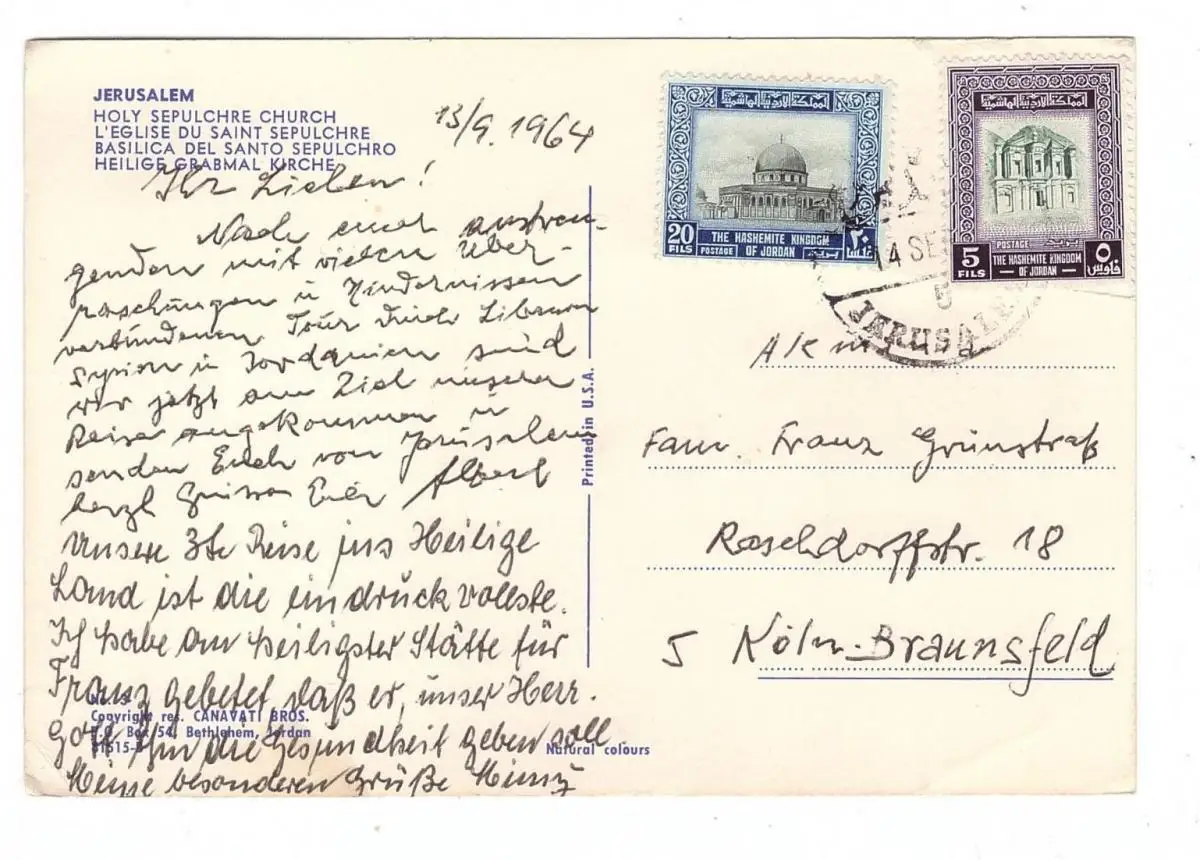 JERUSALEM
HOLY SEPULCHRE CHURCH
L'EGLISE DU SAINT SEPULCHRE
BASILICA DEL SANTO SEPULCHRO
HEILIGE GRABMAL KIRCHE
13/9. 1964
Ihr Lieben!
Nach einer anstren-
genden mit vielen Über-
raschungen u Hindernissen
verbundenen Tour durch Libanon
Syrien u Jordanien sind
wir jetzt am Ziel unserer
Reise angekommen u
senden Euch von Jerusalem
herzl Grüsse Euer Albert
Unsere 3te Reise ins Heilige
Land ist die eindruckvollste.
Ich habe am heiligster Stätte für
Franz gebetet daß er, unser Herr.
Gott ihm die Gesundheit geben soll
Meine besonderen Grüße
Copyright res. CANAVATI BROS.
P.O. Box 54, Bethlehem, Jordan
Natural colours
Printed in U.S.A.
المملكة الأردنية الهاشمية
20
FILS
THE HASHEMITE KINGDOM
POSTAGE
OF JORDAN
بريد
٢٠
فلسا
المملكة الأردنية الهاشمية
POSTAGE
بريد
5
FILS
THE HASHEMITE KINGDOM
OF JORDAN
٥
فلوس
14 SE
5
JERUSALEM
Fam. Franz Grünstraß
Raschdorffstr. 18
5 Köln-Braunsfeld